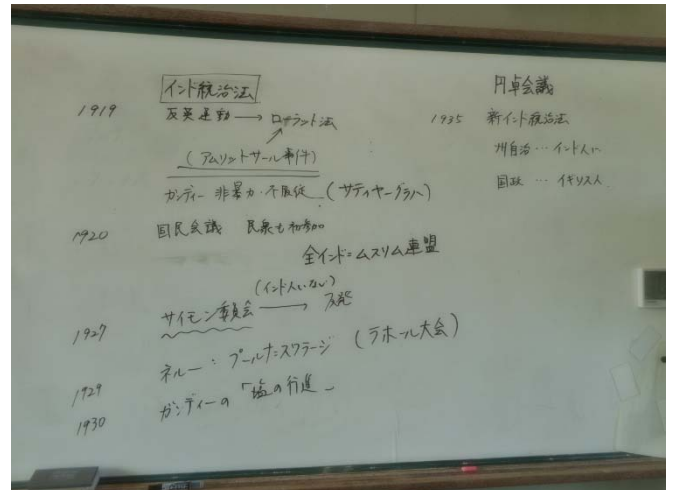 インド統治法
1919 反英運動 → ローラント法
(アムリットサール事件)
ガンディー 非暴力・不服従 (サティヤーグラハ)
1920 国民会議 民衆も初参加
全インド=ムスリム連盟
(インド人いない)
1927 サイモン委員会 → 反発
1929 ネルー:プールナ=スワラージ (ラホール大会)
1930 ガンディーの「塩の行進」
円卓会議
1935 新インド統治法
州自治…インド人に
国政…イギリス人